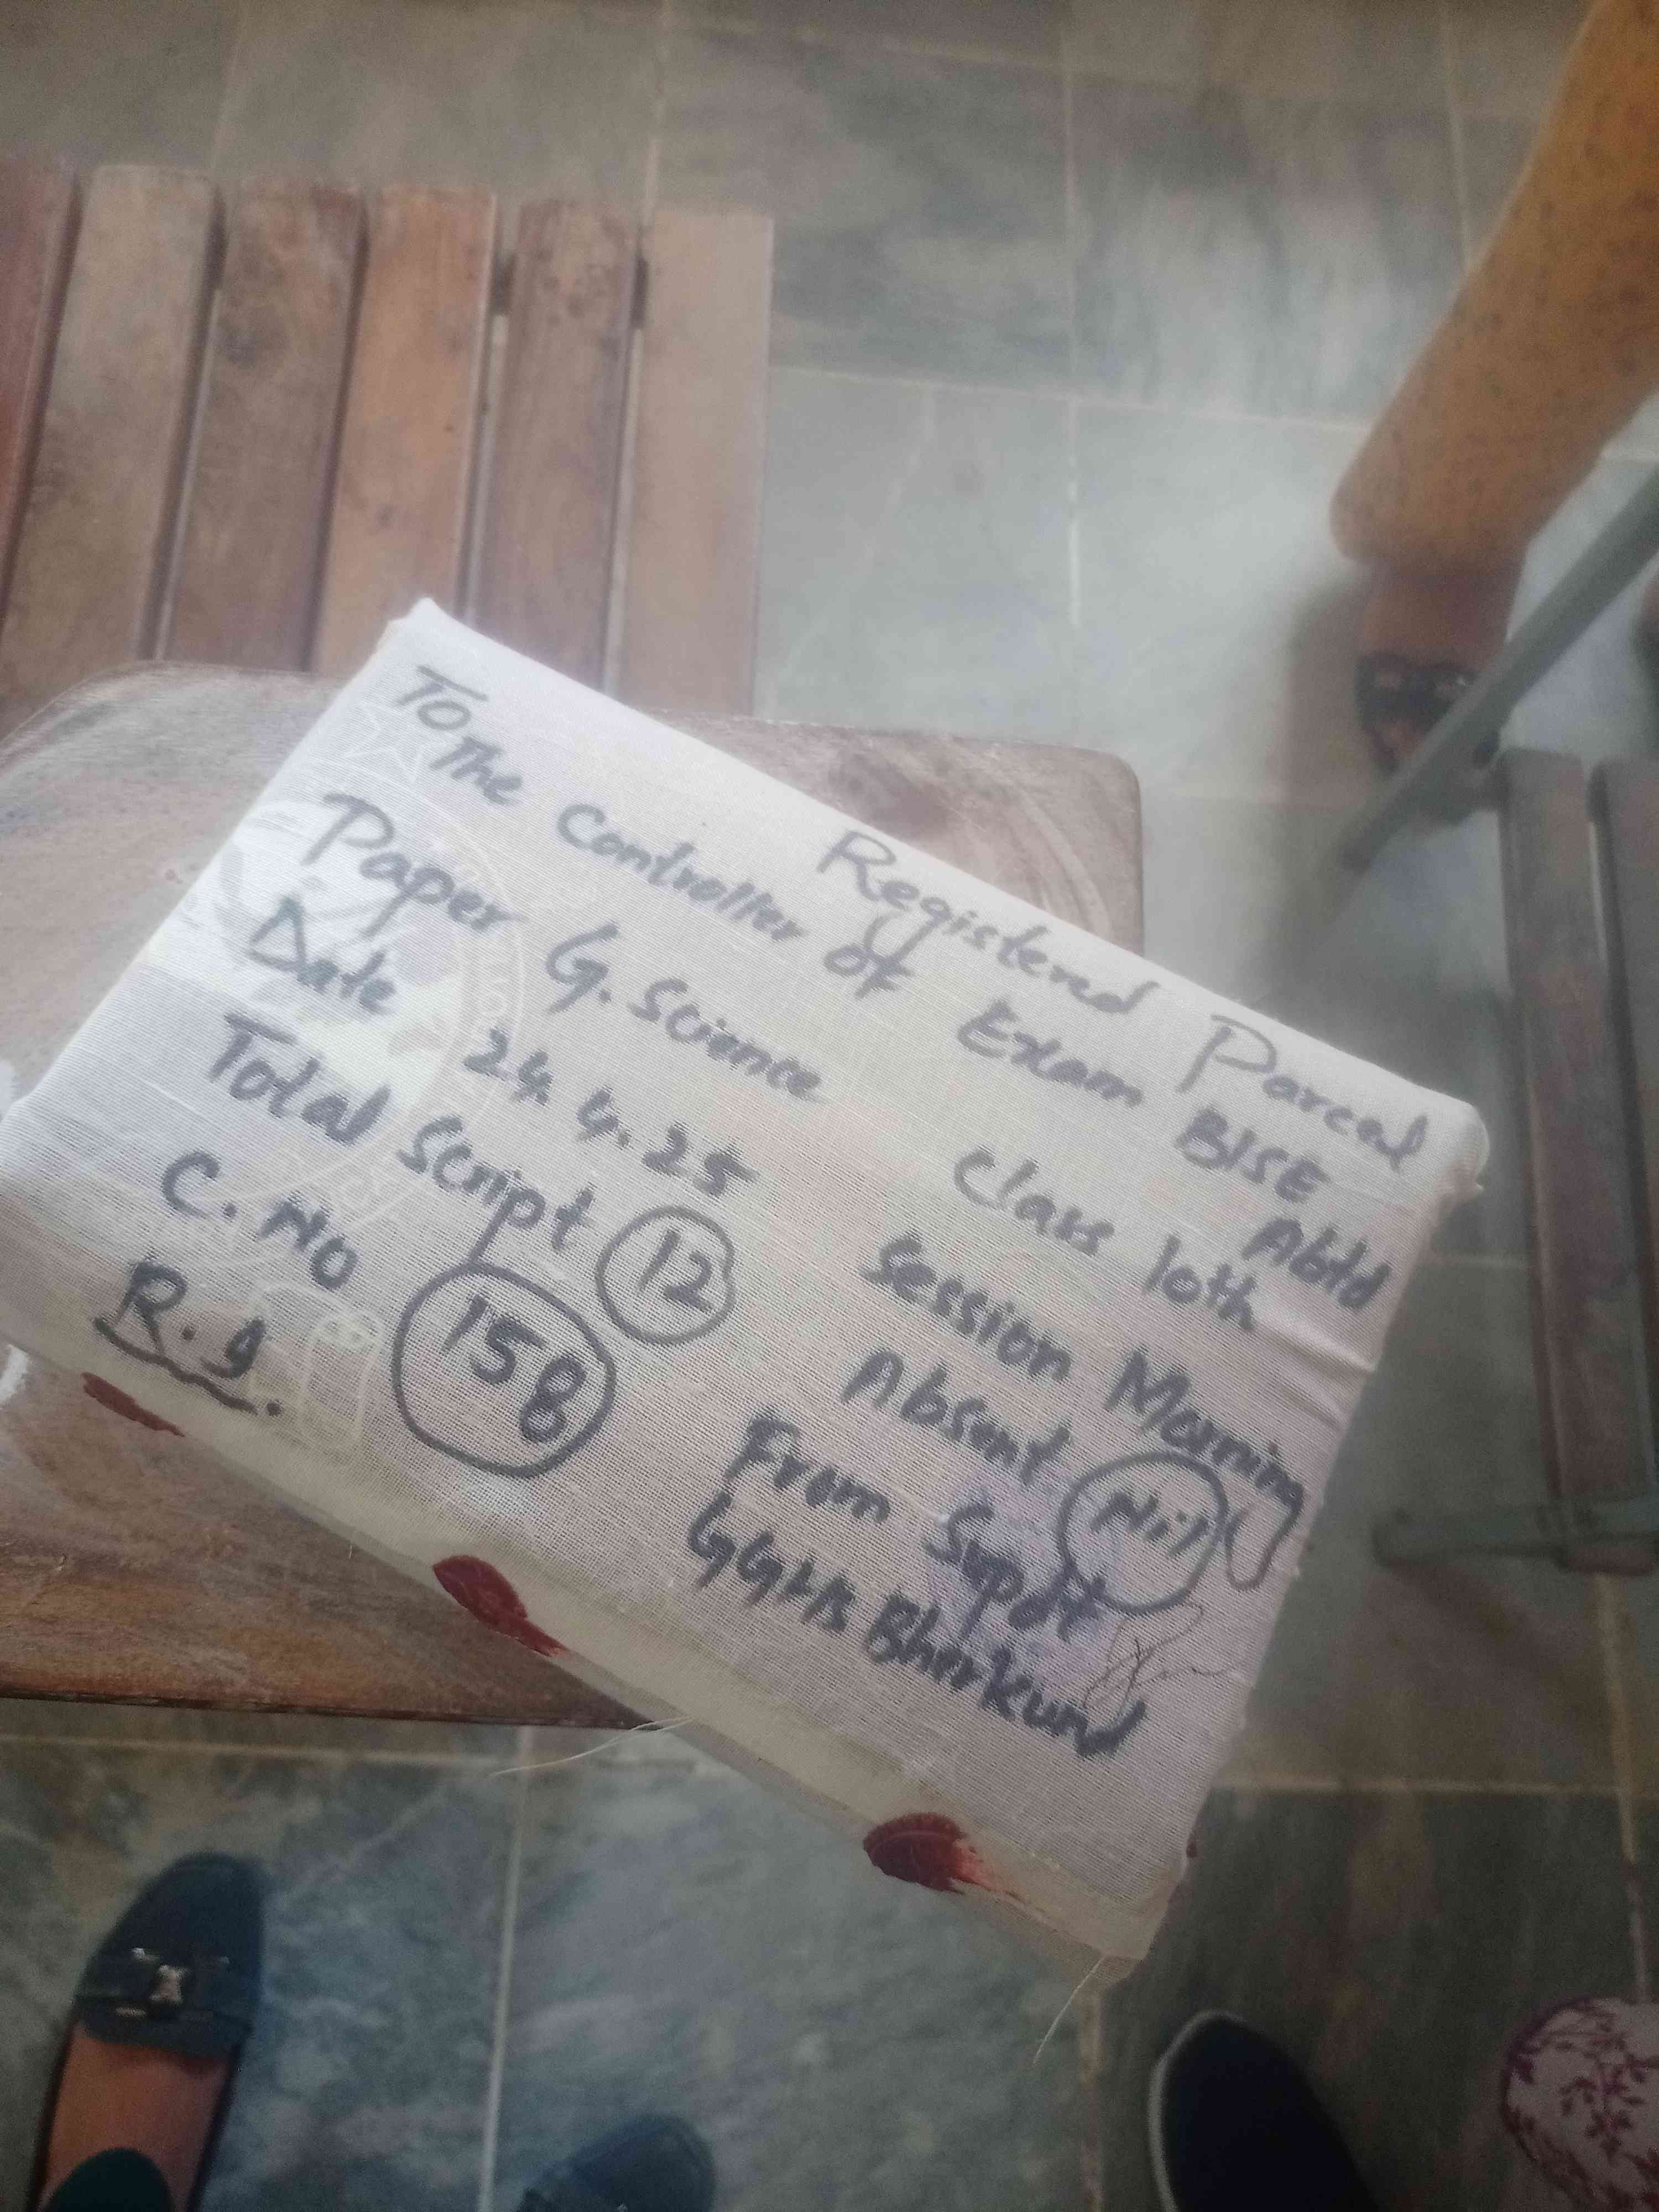 Registered Parcel
To
The Controller of Exam BISE Abtd
Paper G. Science Class 10th
Date 24. 4. 25 Session Morning
Total Script 12 Absent Nil
C. No 158 From Supdt
R. 9 GGHS Bherkund